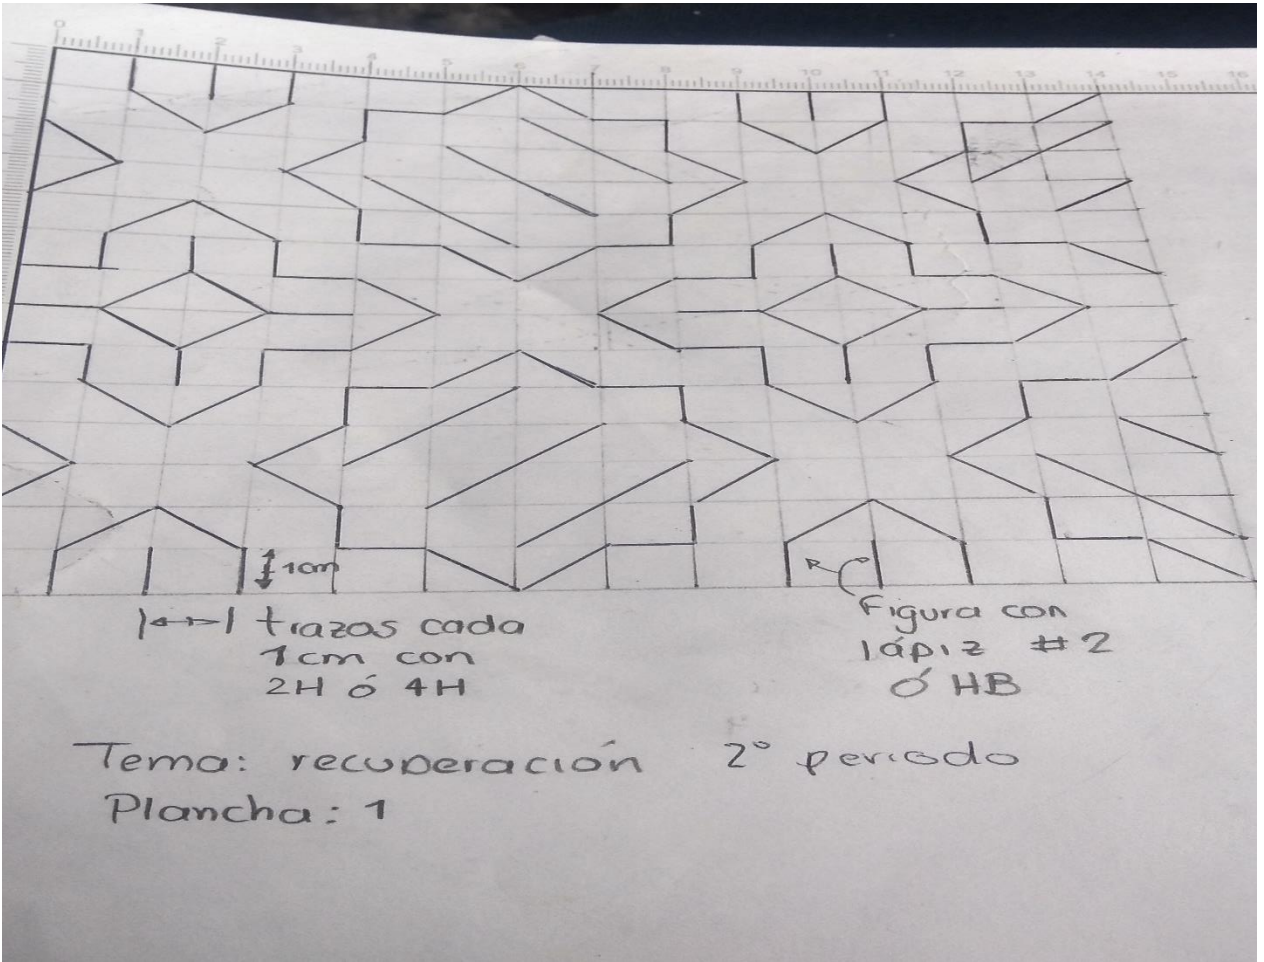 0 1 2 3 4 5 6 7 8 9 10 11 12 13 14 15 16
1cm
trazos cada
1cm con
2H ó 4H
Figura con
lápiz #2
ó HB
Tema: recuperación 2° periodo
Plancha: 1